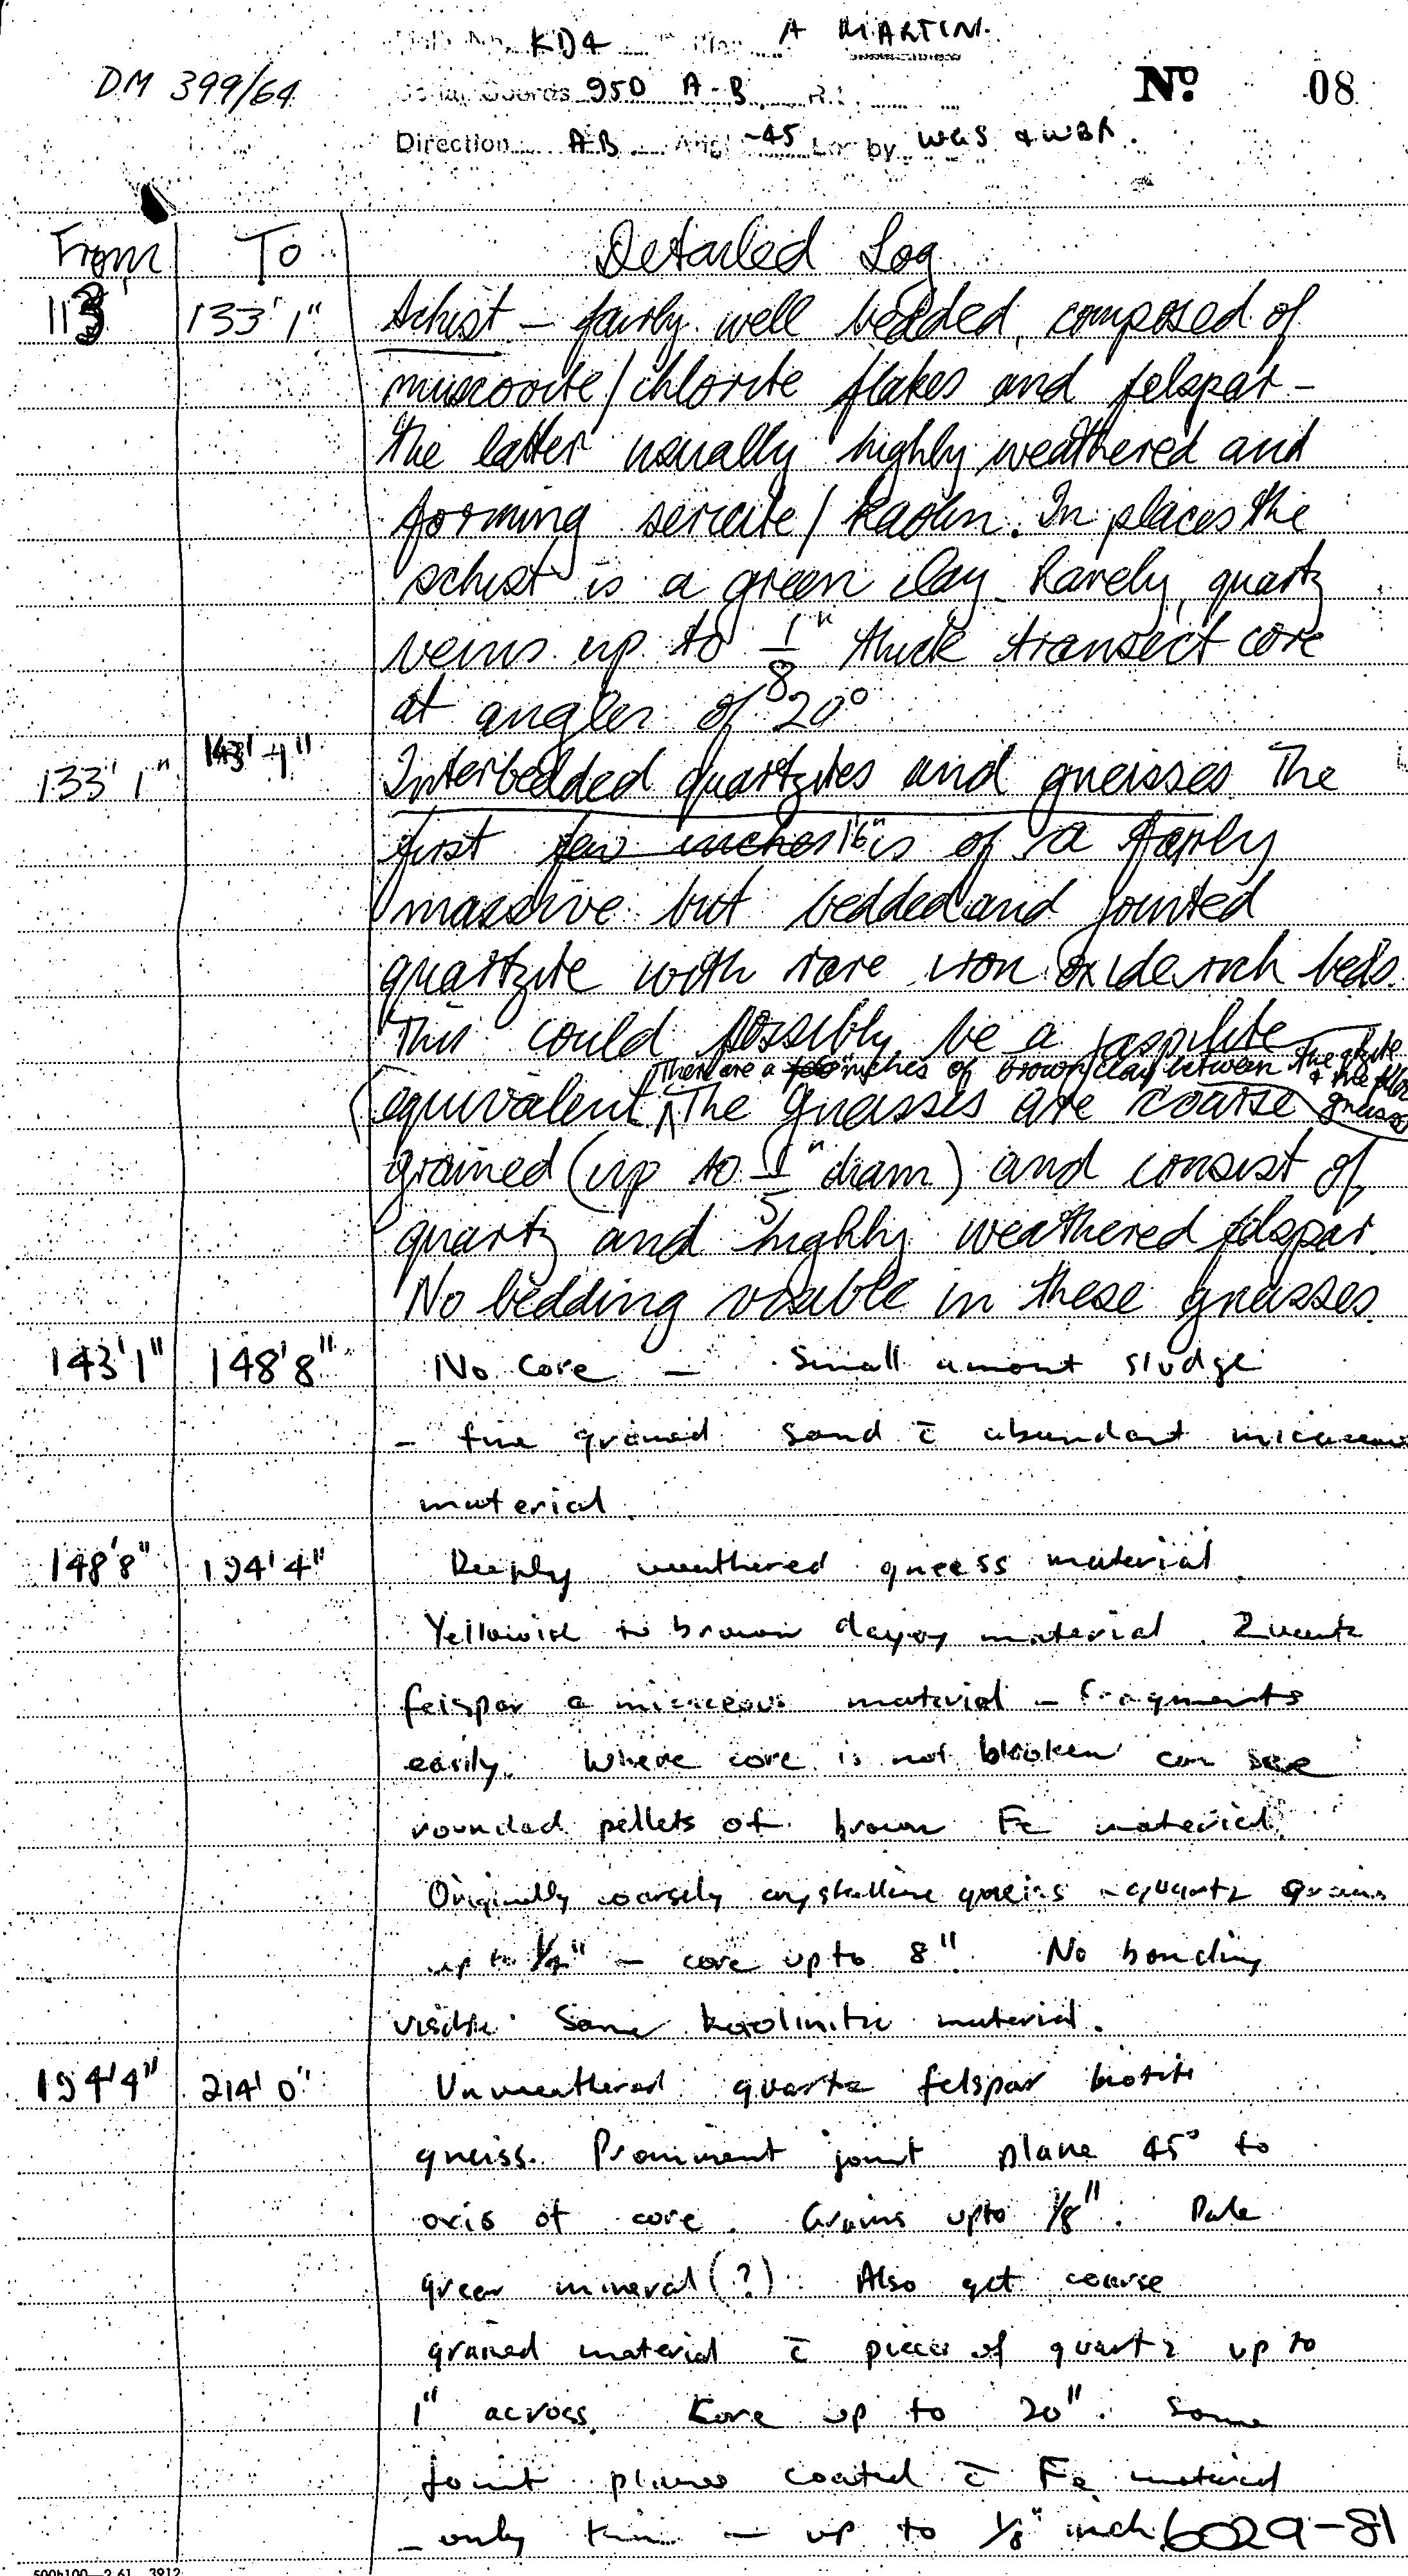 KD4 A MARTIN.
DM 399/64
Coords 950 A-B
No. 08
Direction AB -45 Log by WGS & WBR.
From To Detailed Log
113' 133' 1" Schist - fairly well bedded, composed of
muscovite/chlorite flakes and felspar -
the latter usually highly weathered and
forming sericite/kaolin. In places the
schist is a green clay. Rarely, quartz
veins up to 1/8" thick transect core
at angles of 20°
133' 1" 143' 1" Interbedded quartzites and gneisses. The
first few inches 1'6" is of a fairly
massive but bedded and jointed
quartzite with rare iron oxide rich beds.
This could possibly be a jaspilite
There are a few inches of brown clay between the qtzite
& the
equivalent. The gneisses are coarse
gneisses
grained (up to 1/5" diam) and consist of
quartz and highly weathered felspar.
No bedding visible in these gneisses.
143'1" 148'8" No Core - Small amont sludge
- fine grained sand c̄ abundant micaceous
material.
148'8" 194'4" Deeply weathered gneess material.
Yellowish to brown clayey material. Quartz
felspar a micaceous material - fragments
easily. Where core is not broken can see
rounded pellets of brown Fe material.
Originally coarsely crystalline gneiss - quartz grains
up to 1/4" - core up to 8". No banding
visible. Some kaolinitic material.
194'4" 214' 0" Unweathered quartz felspar biotite
gneiss. Prominent joint plane 45° to
axis of core. Grains upto 1/8". Pale
green mineral (?). Also get coarse
grained material c̄ pieces of quartz up to
1" across. Core up to 20". Some
joint planes coated c̄ Fe material
- only thin - up to 1/8" inch.
6029-81
500b100-2.61 3912